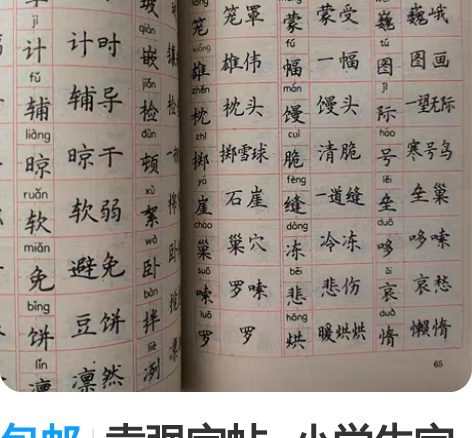 jì qiàn
计 计时 嵌
fǔ jiǎn
辅 辅导 检
liàng dùn
晾 晾干 顿
ruǎn xù
软 软弱 絮
miǎn wò
免 避免 卧
bǐng bàn
饼 豆饼 拌
lǐn liè
凛 凛然 冽
笼 笼罩 蒙 蒙受 巍 巍峨
xióng fú tú
雄 雄伟 幅 一幅 图 图画
zhěn mán jì
枕 枕头 馒 馒头 际 一望无际
zhì cuì háo
掷 掷雪球 脆 清脆 号 寒号鸟
yá fèng lěi
崖 石崖 缝 一道缝 垒 垒巢
cháo dòng duō
巢 巢穴 冻 冷冻 哆 哆嗦
suō bēi āi
嗦 罗嗦 悲 悲伤 哀 哀愁
luō hōng duò
罗 罗 烘 暖烘烘 惰 懒惰
65
包邮 袁强字帖 小学生字